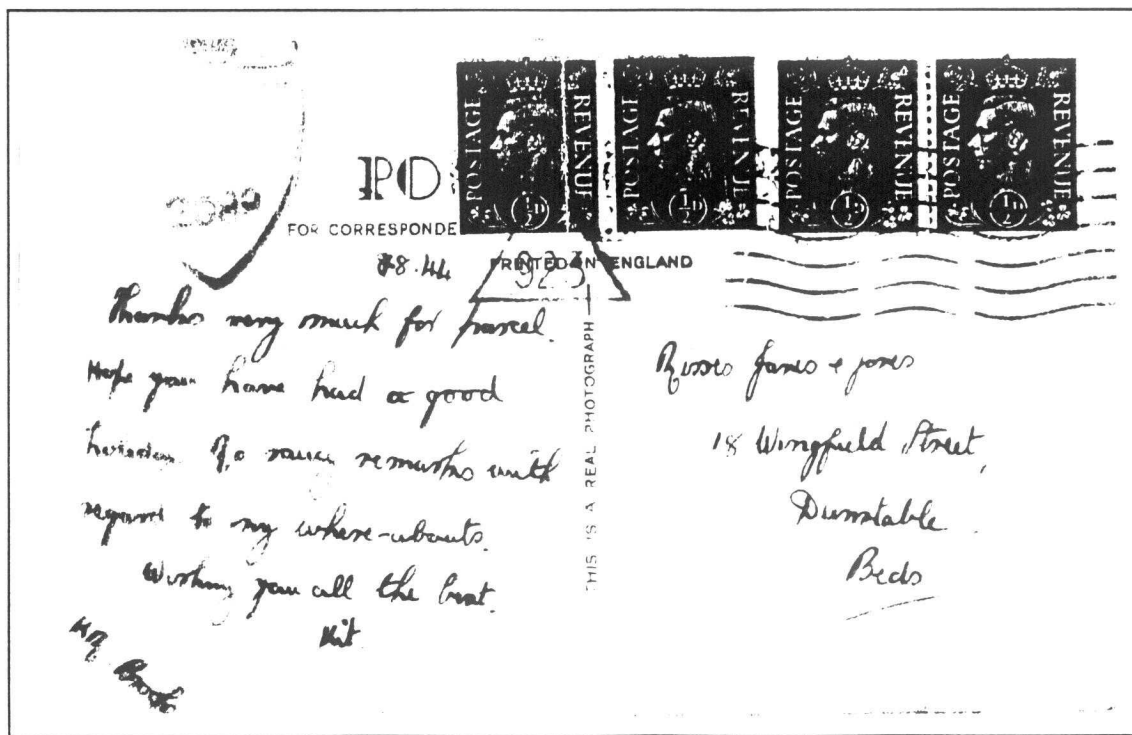 POSTAGE REVENUE ½D
POSTAGE REVENUE ½D
POSTAGE REVENUE ½D
POSTAGE REVENUE ½D
PO
FOR CORRESPONDE
PRINTED IN ENGLAND
923
8.44
THIS IS A REAL PHOTOGRAPH
Thanks very much for parcel.
Hope you have had a good
remarks with
regard to my where-abouts.
Wishing you all the best.
Kit
Janes & Jones
18 Wingfield Street,
Dunstable
Beds